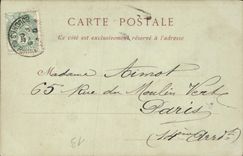 CARTE POSTALE
Ce côté est exclusivement réservé à l'adresse
Madame Aimot
65 Rue du Moulin Vert
Paris
(14ème Arrdt)
13